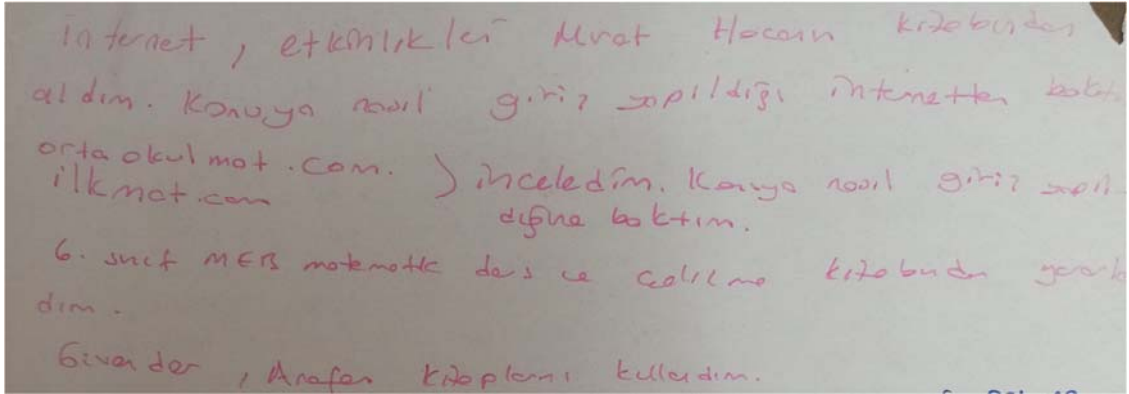 İnternet, etkinlikleri Murat Hocanın kitabından
aldım. Konuya nasıl giriş yapıldığı internetten baktı
ortaokulmat.com.
ilkmat.com } inceledim. Konuya nasıl giriş yapıl-
dığına baktım.
6. sınıf MEB matematik ders ve çalışma kitabından yararlan
dım.
Güvender, Anafen kitaplarını kullandım.